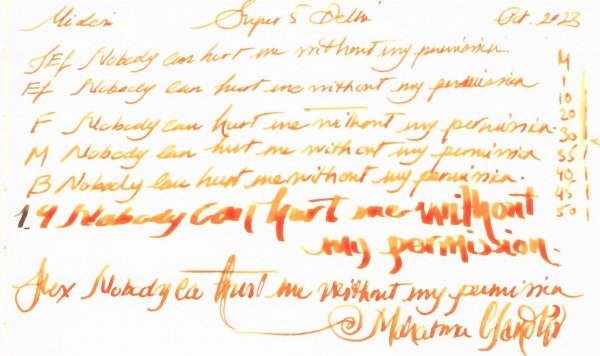 Midori Super 5 Delhi Oct. 2023
JEf Nobody can hurt me without my permission
Ef Nobody can hurt me without my permission
F Nobody can hurt me without my permission.
M Nobody can hurt me without my permission
B Nobody can hurt me without my permission.
1.9 Nobody can hurt me without
my permission.
Flex Nobody can hurt me without my permission
Mahatma Gandhi
M
1
10
20
30
35
40
45
50